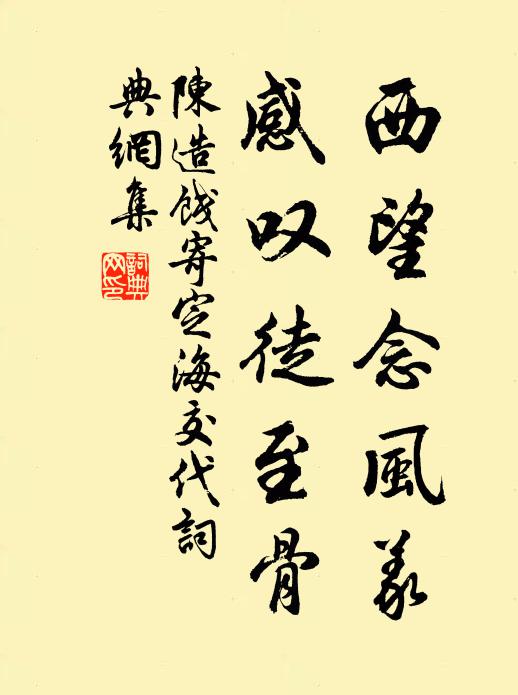 西望念風義
感叹徒至骨
陳造餞寄定海交代詞
典網集
詞典网印